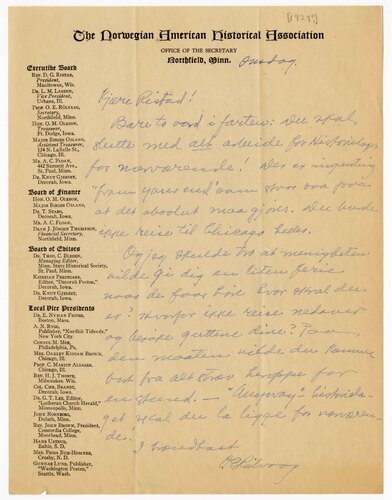 [1928?]
The Norwegian American Historical Association
OFFICE OF THE SECRETARY
Northfield, Minn.
Onsdag.
Executive Board
REV. D. G. RISTAD,
President,
Manitowoc, Wis.
DR. L. M. LARSEN,
Vice President,
Urbana, Ill.
PROF. O. E. RÖLVAAG,
Secretary,
Northfield, Minn.
HON. O. M. OLESON,
Treasurer,
Ft. Dodge, Iowa.
MAJOR BIRGER OSLAND,
Assistant Treasurer,
134 N. LaSalle St.,
Chicago, Ill.
MR. A. C. FLOAN,
442 Summit Ave.,
St. Paul, Minn.
DR. KNUT GJERSET,
Decorah, Iowa.
Board of Finance
HON. O. M. OLESON,
MAJOR BIRGER OSLAND,
DR. T. STABO,
Decorah, Iowa.
MR. A. C. FLOAN,
DEAN J. JÖRGEN THOMPSON,
Financial Secretary,
Northfield, Minn.
Board of Editors
DR. THEO. C. BLEGEN,
Managing Editor,
Minn. State Historical Society,
St. Paul, Minn.
KRISTIAN PRESTGARD,
Editor, "Decorah Posten",
Decorah, Iowa.
DR. KNUT GJERSET,
Decorah, Iowa.
Local Vice Presidents
DR. E. NYMAN FIGNER,
Boston, Mass.
A. N. RYGG,
Publisher "Nordisk Tidende",
New York City.
CONSUL M. MOE,
Philadelphia, Pa.
MRS. OAKLEY KISSAM BROWN,
Chicago, Ill.
PROF. C. MARTIN ALSAGER,
Chicago, Ill.
REV. H. J. THORPE,
Milwaukee, Wis.
COL. CHR. BRANDT,
Decorah, Iowa.
DR. G. T. LEE, Editor
"Lutheran Church Herald,"
Minneapolis, Minn.
JOHN NORMOE,
Duluth, Minn.
REV. JOHN BROWN, President
Concordia College,
Moorhead, Minn.
HANS USTRUD,
Baltic, S. D.
MRS. FRIDA BUE-HOMNES,
Crosby, N. D.
GUNNAR LUND, Publisher,
"Washington Posten"
Seattle, Wash.
Kjære Ristad!
Bare to ord i farten: Du skal
slutte med alt arbeide for Historielaget
for nærværende! Alt
"from your end" som
at det absolut maa gjøres. Du burde
ikke reise til Chicago heller.
Og jeg skulde tro at menigheten
vilde gi dig en liten ferie
naar de faar høre hvor
er? Hvorfor ikke reise nedover
og besøke guttene dine? Paa
den maaten vilde du komme
bort fra alt
en stund. – "Anyway" Historiela-
get skal du la ligge for nærværen
de!
I vendskap
O E Rölvaag